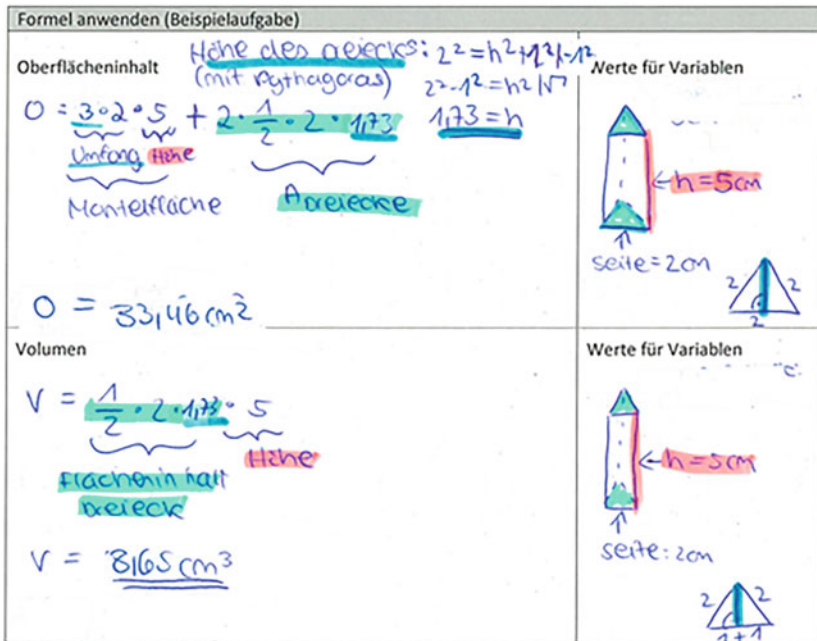 Formel anwenden (Beispielaufgabe)
Oberflächeninhalt
Höhe des Dreiecks: 2² = h² + 1² |-1²
(mit Pythagoras) 2²-1² = h² |√
1,73 = h
O = 3·2·5 + 2·1/2·2·1,73
Umfang Höhe
Mantelfläche ADreiecke
O = 33,46 cm²
Werte für Variablen
h = 5cm
seite = 2cm
2 2
2
Volumen
V = 1/2·2·1,73·5
Flächeninhalt Höhe
Dreieck
V = 8,65 cm³
Werte für Variablen
h = 5cm
seite: 2cm
2 2
1+1